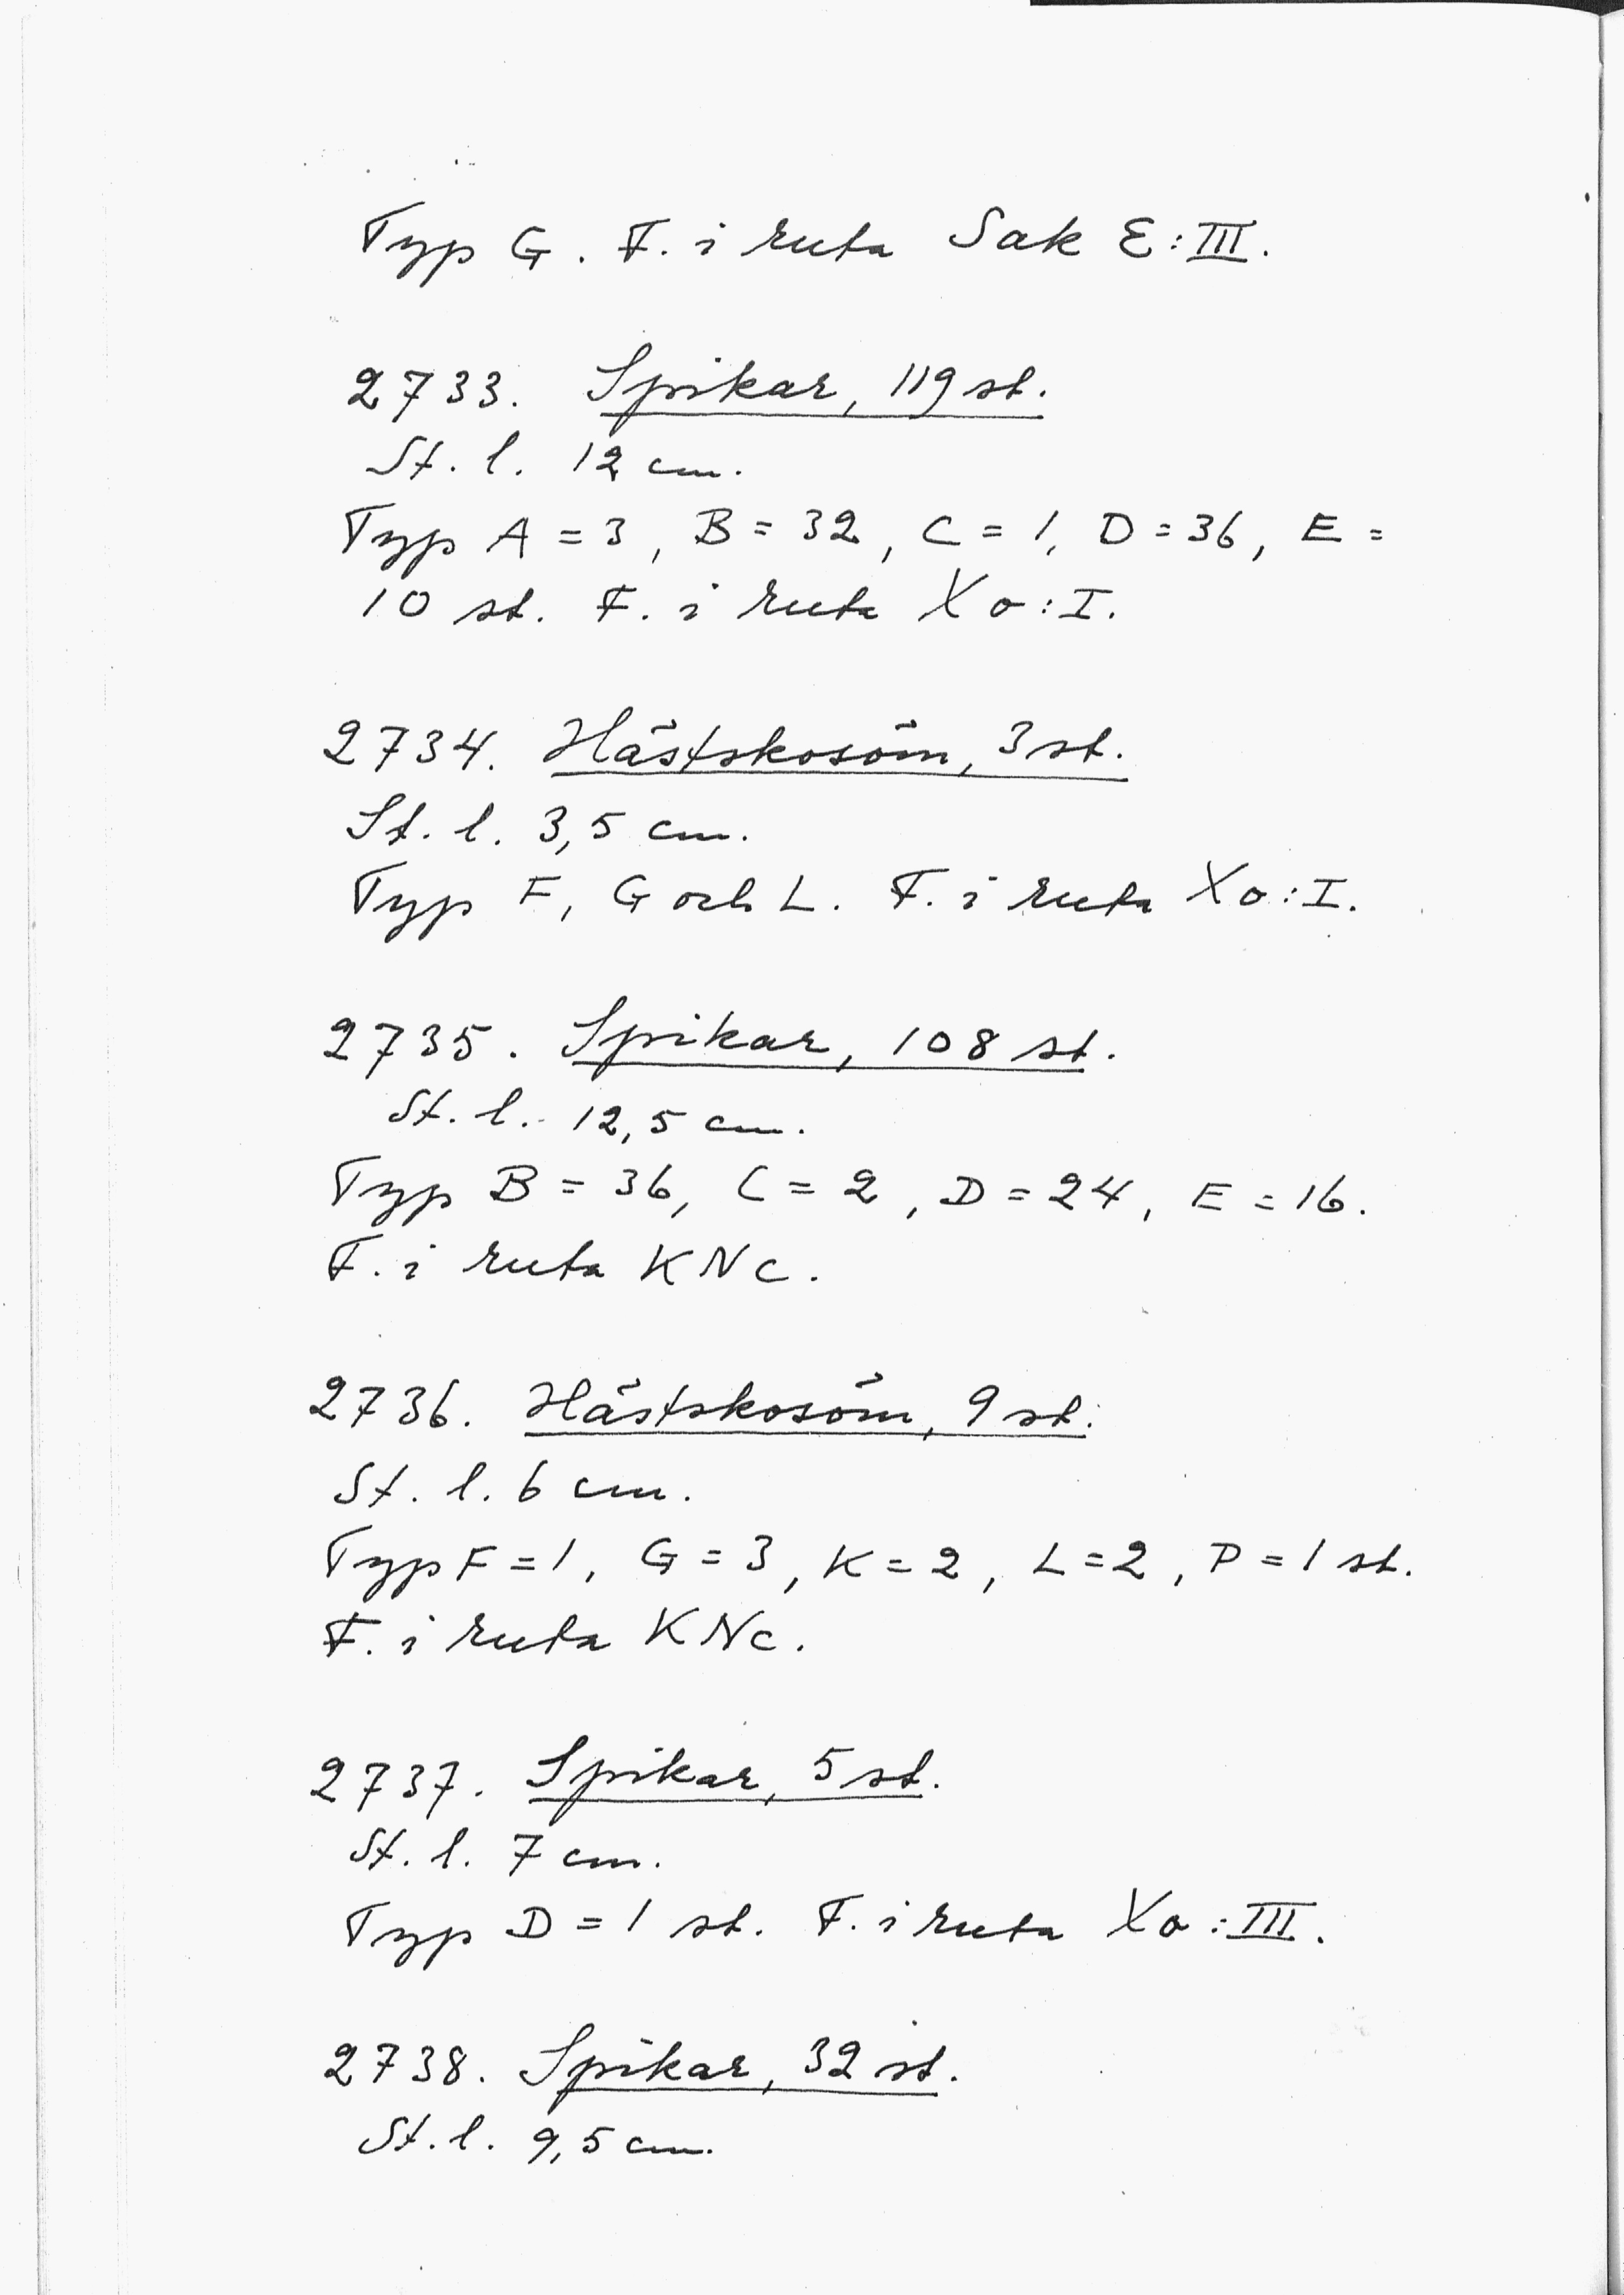 Typ G. F. i ruta Sak E:III.
2733. Spikar, 119 st.
St. l. 12 cm.
Typ A = 3, B = 32, C = 1, D = 36, E =
10 st. F. i ruta Xo:I.
2734. Hästskosöm, 3 st.
St. l. 3,5 cm.
Typ F, G och L. F. i ruta Xo:I.
2735. Spikar, 108 st.
St. l. 12,5 cm.
Typ B = 36, C = 2, D = 24, E = 16.
F. i ruta KNc.
2736. Hästskosöm, 9 st.
St. l. 6 cm.
Typ F = 1, G = 3, K = 2, L = 2, P = 1 st.
F. i ruta KNc.
2737. Spikar, 5 st.
St. l. 7 cm.
Typ D = 1 st. F. i ruta Xo:III.
2738. Spikar, 32 st.
St. l. 9,5 cm.